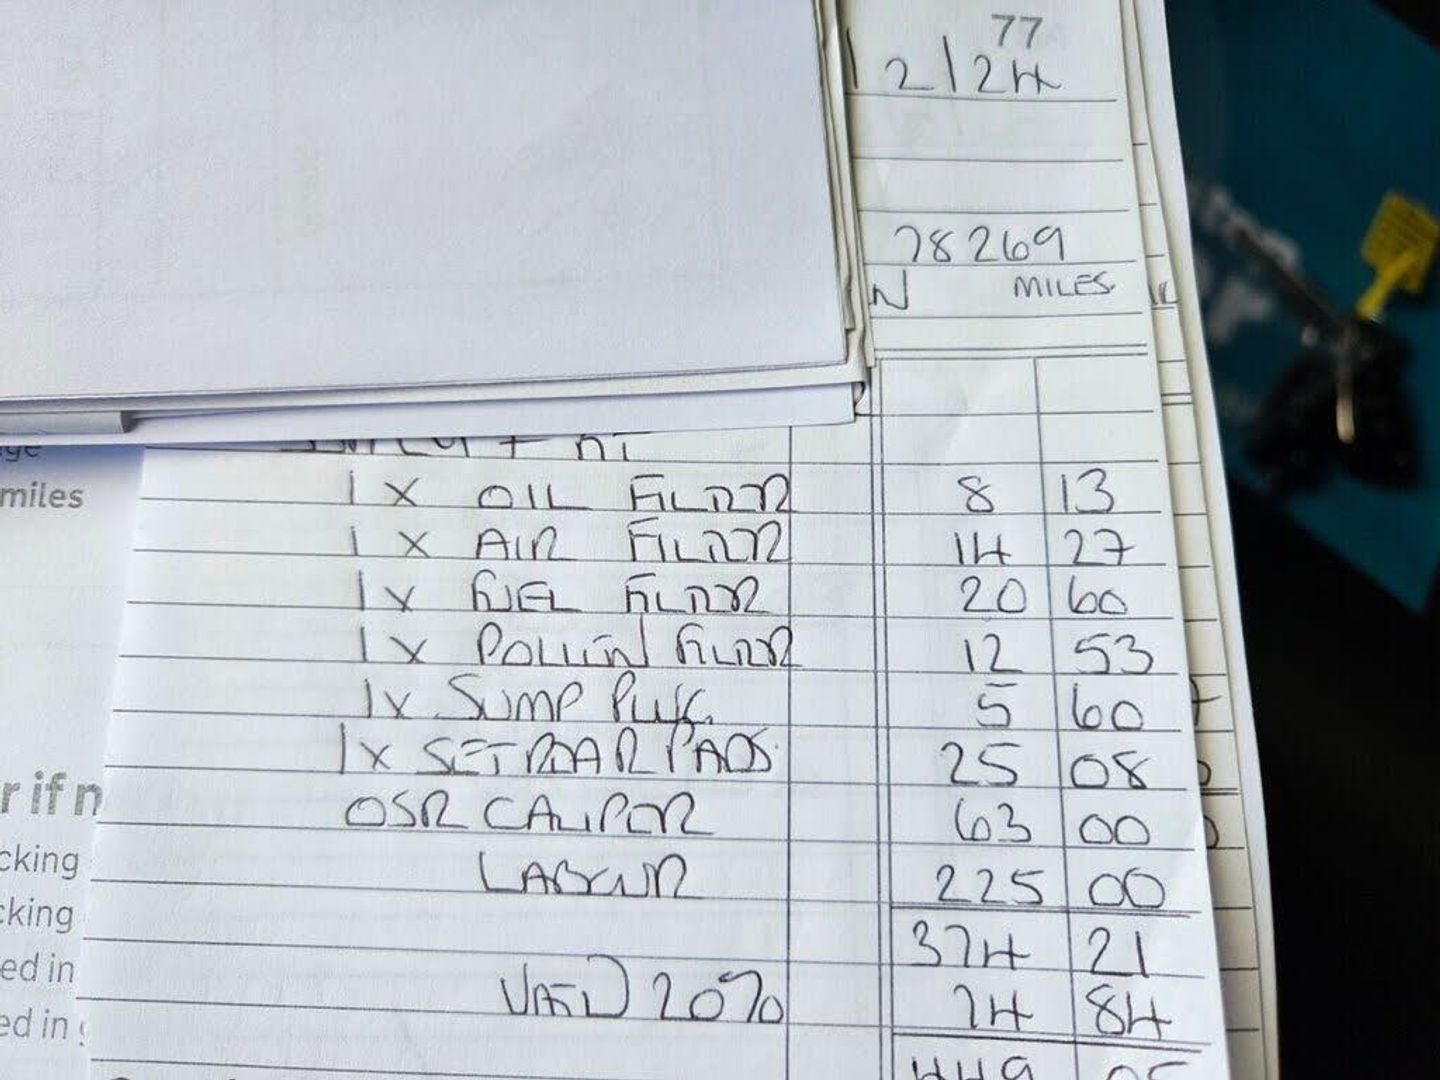 77
12/24
78269
N MILES
miles
1 X OIL FILTER 8 13
1 X AIR FILTER 14 27
1 X FUEL FILTER 20 60
1 X POLLEN FILTER 12 53
1X SUMP PLUG. 5 60
1X SET REAR PADS 25 08
r if n
OSR CALIPER 63 00
cking
LABOUR 225 00
cking
374 21
ed in
VAT@ 20% 74 84
ed in
449 05